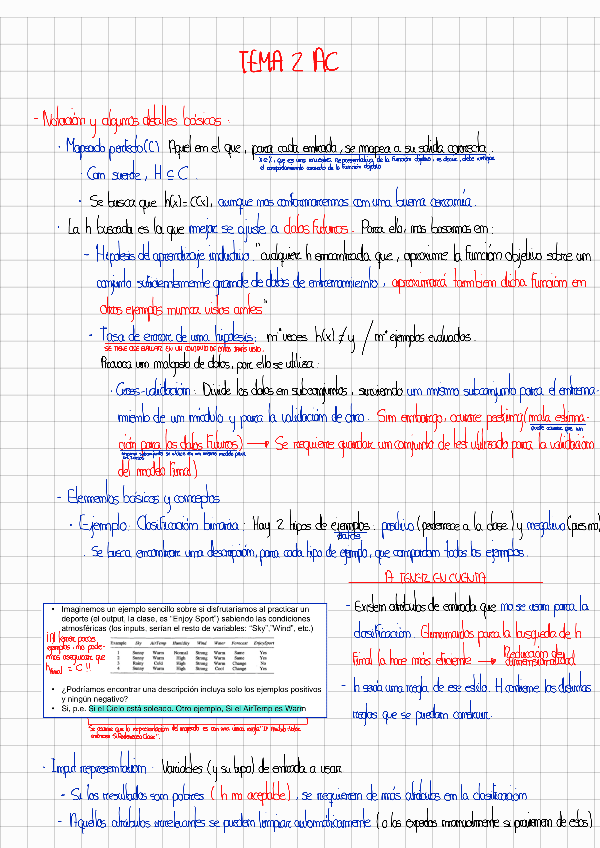 TEMA 2 AC
- Notación y algunos detalles básicos:
· Mapeado perfecto (C) Aquel en el que, para cada entrada, se mapea a su salida correcta.
x ∈ X, que es una muestra representativa de la función objetivo, es decir, debe
el comportamiento correcto de la función objetivo
· Con suerte, H ⊆ C.
· Se busca que h(x) = C(x), aunque nos conformaremos con una buena cercanía.
· La h buscada es la que mejor se ajuste a datos futuros. Para ello, nos basamos en:
- Hipótesis del aprendizaje inductivo. "cualquier h encontrada que, aproxime la función objetivo sobre un
conjunto suficientemente grande de datos de entrenamiento, aproximará también dicha función en
otros ejemplos nunca vistos antes"
- Tasa de error de una hipótesis: nº veces h(x) ≠ y / nº ejemplos evaluados.
SE TIENE QUE EVALUAR EN UN CONJUNTO DE DATOS JAMÁS VISTO.
Provoca un malgasto de datos, por ello se utiliza:
· Cross-validation: Divide los datos en subconjuntos, sirviendo un mismo subconjunto para el entrena-
miento de un módulo y para la validación de otro. Sin embargo, ocurre peeking (mala estima-
ción para los datos futuros) → Se requiere guardar un conjunto de test utilizado para la validación
puede ocurrir que un
mismo subconjunto se utilice en un mismo modelo para
las tareas
del modelo final)
- Elementos básicos y conceptos
· Ejemplo: Clasificación binaria: Hay 2 tipos de ejemplos: positivo (pertenece a la clase) y negativo
datos
· Se busca encontrar una descripción, para cada tipo de ejemplo, que compartan todos los ejemplos.
A TENER EN CUENTA
• Imaginemos un ejemplo sencillo sobre si disfrutaríamos al practicar un
deporte (el output, la clase, es "Enjoy Sport") sabiendo las condiciones
atmosféricas (los inputs, serían el resto de variables: "Sky", "Wind", etc.)
¡Al tener pocos
ejemplos, no pode-
mos asegurar que
h final = C!!
Example Sky AirTemp Humidity Wind Water Forecast EnjoySport
1 Sunny Warm Normal Strong Warm Same Yes
2 Sunny Warm High Strong Warm Same Yes
3 Rainy Cold High Strong Warm Change No
4 Sunny Warm High Strong Cool Change Yes
• ¿Podríamos encontrar una descripción incluya solo los ejemplos positivos
y ningún negativo?
• Si, p.e. Si el Cielo está soleado. Otro ejemplo, Si el AirTemp es Warm
"Se asume que la representación del mapeado es con una única regla "
- Existen atributos de entrada que no se usan para la
clasificación. Eliminarlos para la búsqueda de h
final la hace más eficiente → Reducción de
dimensionalidad
- h sería una regla de ese estilo. H contiene las distintas
reglas que se puedan construir.
· Input representation: Variables (y su tipo) de entrada a usar
- Si los resultados son pobres (h no aceptable), se requieren de más atributos en la clasificación
- Aquellos atributos irrelevantes se pueden limpiar automáticamente (o los expertos manualmente si provienen de esos)